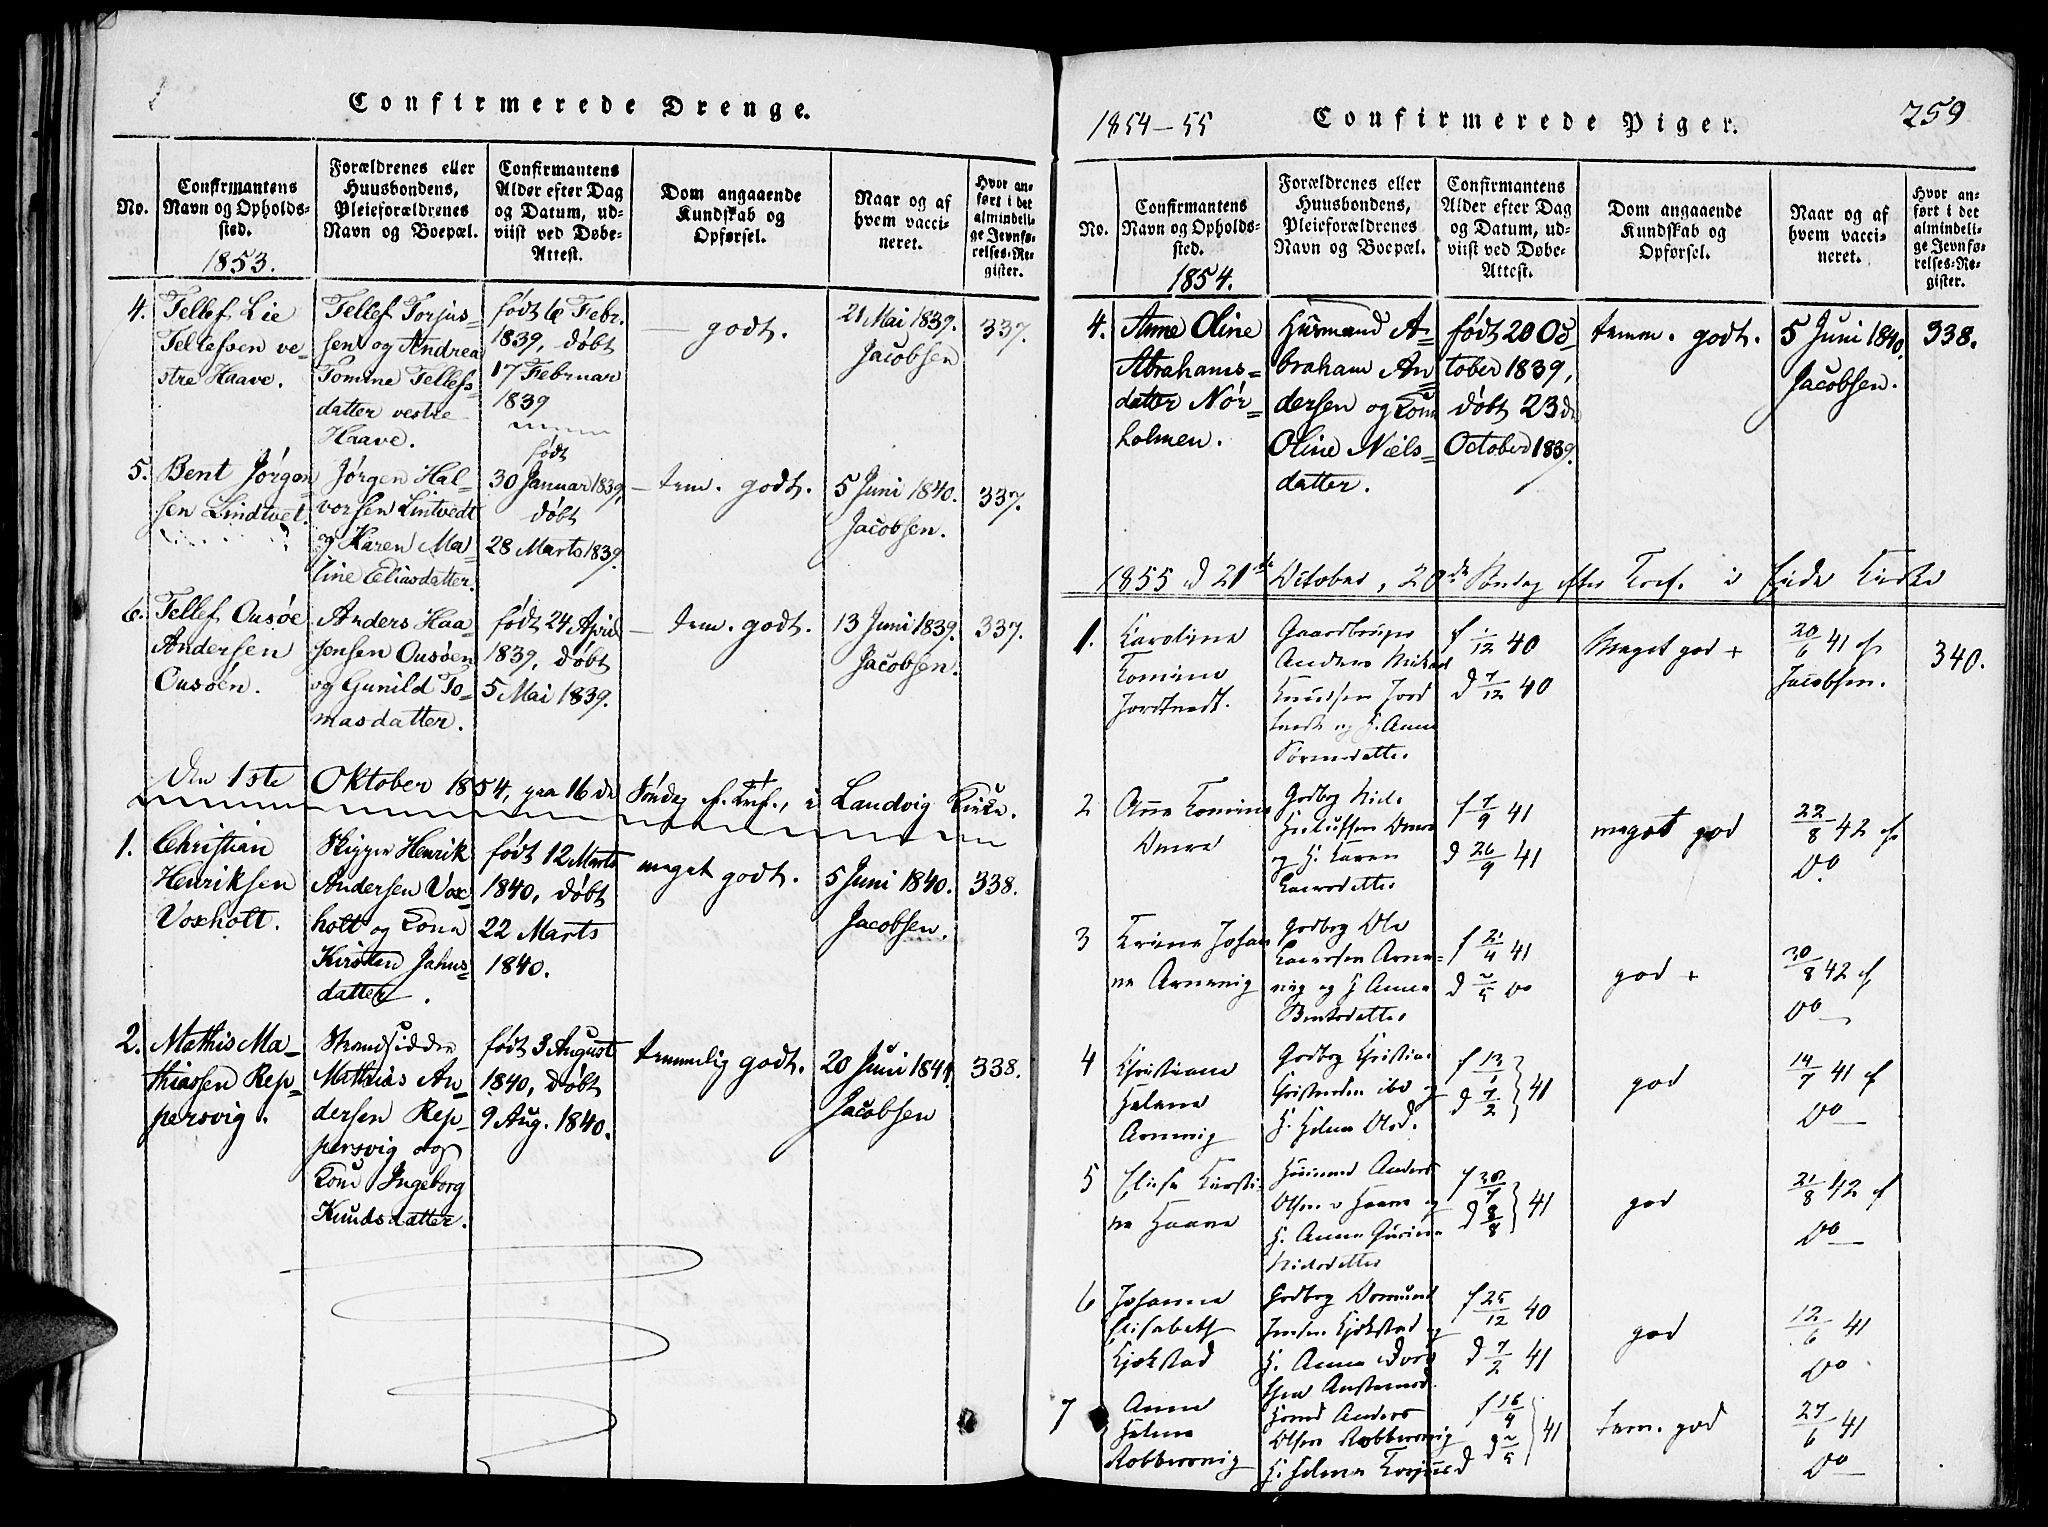 Confirmerede Drenge.
No.
Confirmantens
Navn og Opholds-
sted.
1853.
Forældrenes eller
Huusbondens,
Pleieforældrenes
Navn og Boepæl.
Confirmantens
Alder efter Dag
og Datum, ud-
viist ved Døbe-
Attest.
Dom angaaende
Kundskab og
Opførsel.
Naar og af
hvem vacci-
neret.
Hvor an-
ført i det
almindeli-
ge Jevnfø-
relses-Re-
gister.
4.
Tellef Lie
Tellefsen ve-
stre Haave.
Tellef Torjus-
sen og Andrea
Tomine Tellefs-
datter vestre
Haave.
født 6 Febr.
1839, døbt
17 Februar
1839
— godt.
21 Mai 1839.
Jacobsen
337.
5.
Bent Jørgen-
sen Lindtvet.
Jørgen Hal-
vorsen Lintvedt
og Karen Ma-
line Eliasdatter.
født
30 Januar 1839,
døbt
28 Marts 1839.
— tem. godt.
5 Juni 1840.
Jacobsen.
337.
6.
Tellef Ousøe
Andersen
Ousøen.
Anders Haa-
gensen Ousøen
og Gunild To-
masdatter.
født 24 April
1839, døbt
5 Mai 1839.
— tem. godt.
13 Juni 1839.
Jacobsen.
337.
Den 1ste Oktober 1854, paa 16de Søndag f. Tref., i Landvig Kirke.
1.
Christian
Henriksen
Voxholt.
Skipper Henrik
Andersen Vox-
holt og Kone
Kirsten Jahns-
datter.
født 12 Marts
1840, døbt
22 Marts
1840.
meget godt.
5 Juni 1840.
Jacobsen.
338.
2.
Mathis Ma-
thiassen Rep-
persvig.
Strandsidder
Mathias An-
dersen Rep-
persvig og
Kone Ingeborg
Knudsdatter.
født 3 August
1840, døbt
9 Aug. 1840.
temmelig godt.
20 Juni 1841.
Jacobsen
338.
1854-55
Confirmerede Piger.
259
No.
Confirmantens
Navn og Opholds-
sted.
1854.
Forældrenes eller
Huusbondens,
Pleieforældrenes
Navn og Boepæl.
Confirmantens
Alder efter Dag
og Datum, ud-
viist ved Døbe-
Attest.
Dom angaaende
Kundskab og
Opførsel.
Naar og af
hvem vacci-
neret.
Hvor an-
ført i det
almindeli-
ge Jevnfø-
relses-Re-
gister.
4.
Anne Oline
Abrahams-
datter Nør-
holmen.
Husmand A-
braham An-
dersen og Kone
Oline Niels-
datter.
født 20 Oc-
tober 1839,
døbt 23de
October 1839.
temm. godt.
5 Juni 1840.
Jacobsen.
338.
1855 d 21de October, 20de Søndag efter Tref. i Eide Kirke
1.
Karoline
Tomine
Gaardbruger
Anders
Knudsen
og H. Anne
f 1/12 40
d 7/12 40
Meget god +
20/6 41 af
Jacobsen.
340.
2
Anne Tomine
Omre
Gdbrg Niels
Omre
og H. Karen
Larsdatter
f 7/9 41
d 26/9 41
meget god
22/8 42 af
Do
3
Trine Johan-
ne Arnevig
Gdbrg Ole
Larsen Arne-
vig og H Anne
Bentsdatter
f 21/4 41
d 2/5 Do
god +
30/8 42 af
Do
4
Christiane
Helene
Arnevig
Gdbrg Christian
Christensen ibd og
H. Helene Olsd.
f 13/1
d 7/2 } 41
god
14/7 41 af
Do
5
Elise Kirsti-
ne Haave
Huusmand Anders
Olsen v Haave og
H. Anne Gurine
Nielsdatter
f 30/7
d 8/8 } 41
god
21/8 42 af
Do
6
Johanne
Elisabeth
Kjekstad
Gdbrg Osmund
Jensen Kjekstad og
H. Anne
f 25/12 40
d 7/2 41
god
12/6 41
Do
7
Anne
Helene
Robbersvig
Anders
Olsen Robbersvig
H. Helene
f 16/4
d 2/5 } 41
tem. god
27/6 41
Do